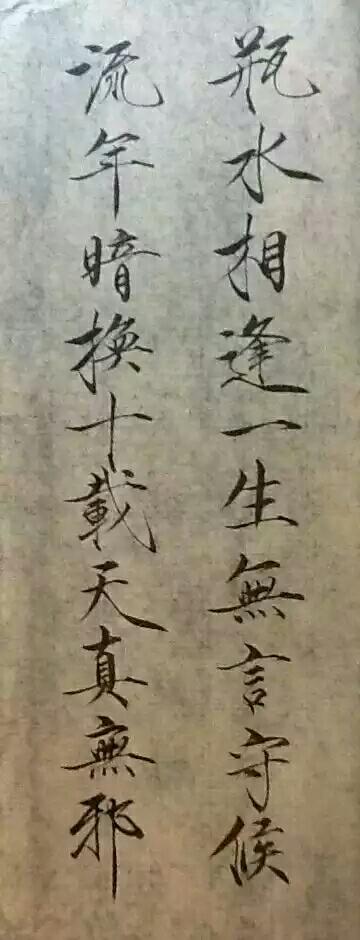 瓶水相逢一生無言守候
流年暗換十載天真無邪